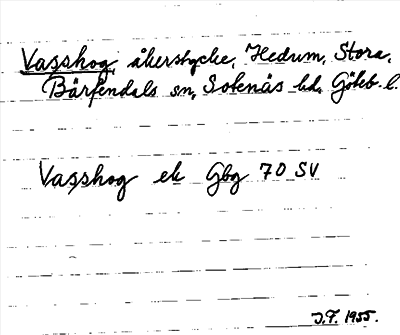 Vasshog, åkerstycke, Hedum, Stora,
Bärfendals sn, Sotenäs hd, Göteb. l.
Vasshog ek Gbg 70 SV
J.F. 1955.